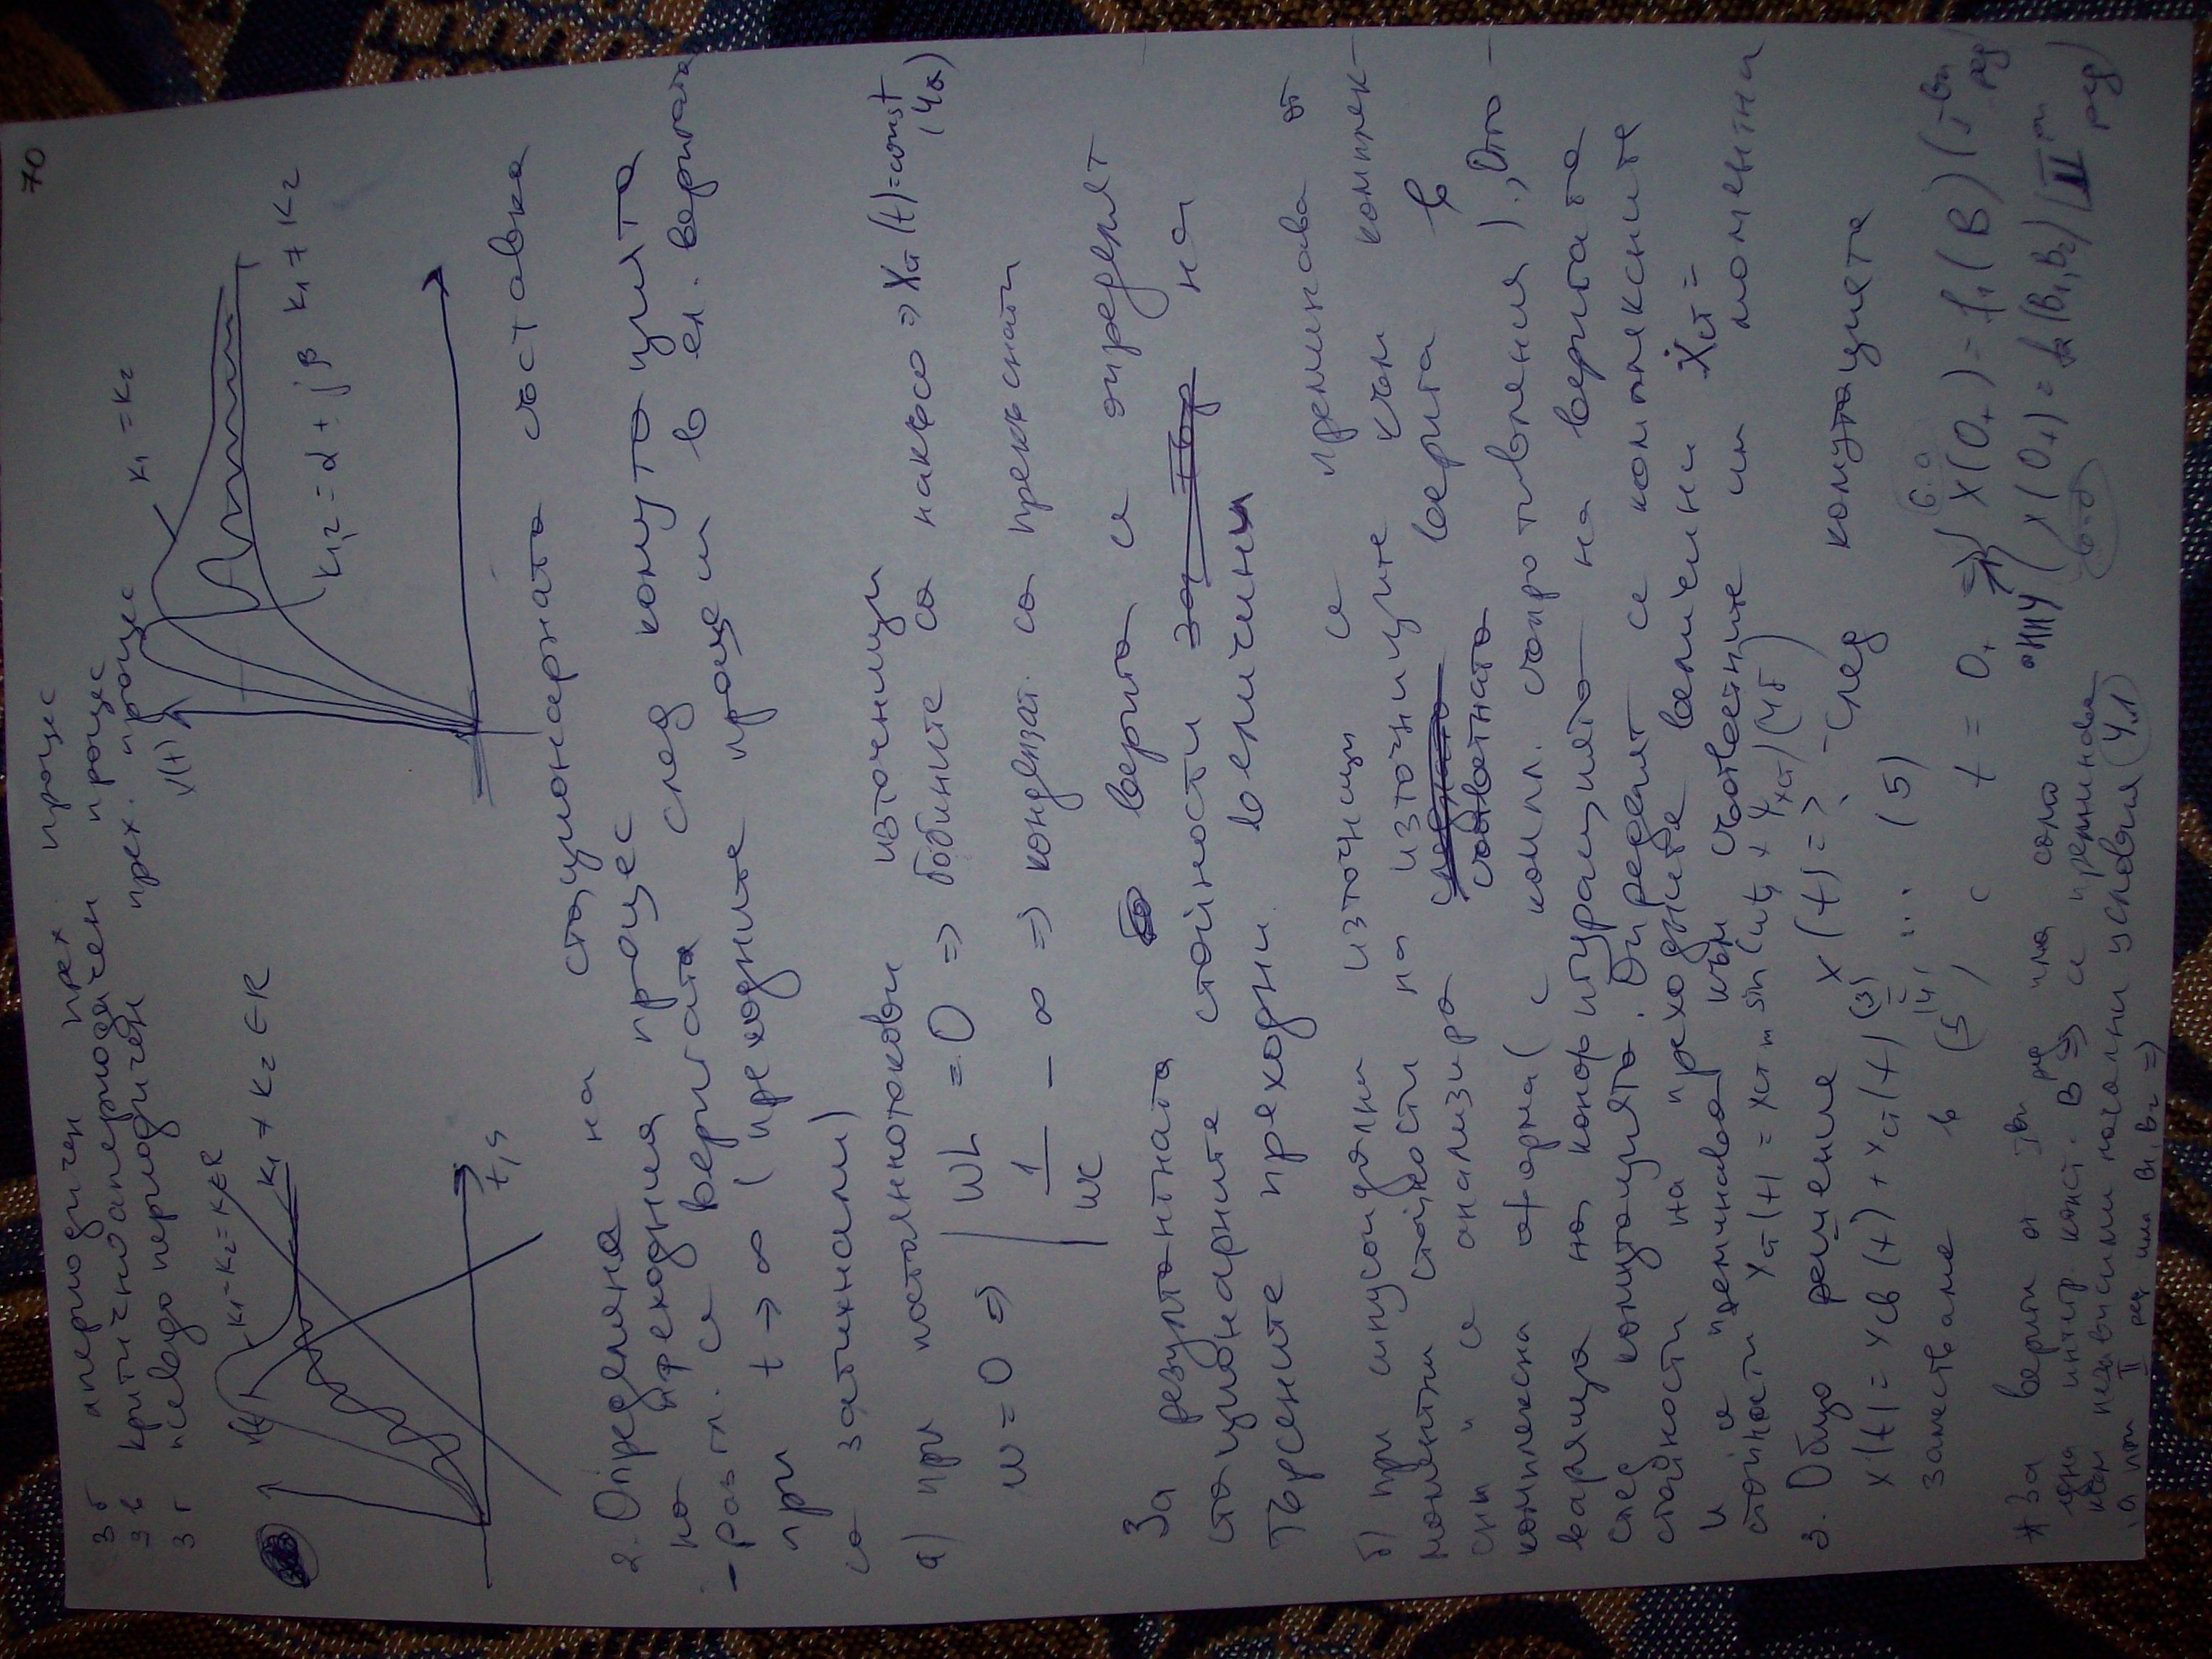 70
3б апериодичен прех. процес
3в критично апериодичен процес
3г псевдо периодичен прех. процес
x(t)
K₁ = K₂ = K ∈ R
K₁ ≠ K₂ ∈ R
t, s
x(t)
K₁ = K₂
K₁,₂ = α ± jβ K₁ ≠ K₂
2. Определяне на стационарната съставка
на преходния процес
- разгл. се веригата след комутацията
при t → ∞ (преходните процеси в ел. верига
са затихнали)
а) при постояннотокови източници
ω = 0 ⇒ | ωL = 0 ⇒ бобините са накъсо ⇒ Xст(t) = const (4а)
1/ωC – ∞ ⇒ кондензат. са прекъснати
За резултантната верига се определят
стационарните стойности на
търсените преходни величини
б) при синусоидални източници се преминава от
моментни стойности на източниците към комплек-
сни и се анализира съответната верига в
комплексна форма (с компл. съпротивления). Ото-
варяща на конфигурацията на веригата
след комутацията. Определят се комплексните
стойности на преходните величини Ẋст =
и се преминава към съответните им моментни
стойности xст(t) = xст m sin(ωt + ψxст) (4б)
3. Общо решение x(t) = > - след комутацията
x(t) = xсв(t) + xст(t) (3) (4) ... (5)
заместваме в (5) с t = 0₊ ⇒ x(0₊) = f₁(B) (I-ви ред)
6.а
ННУ x(0₊) = f₂(B₁, B₂) (II-ри ред)
6.б
* За вериги от I-ви ред има само
една интегр. конст. B ⇒ се преминава
към независими начални условия (4.1)
, а при II ред има B₁, B₂ ⇒